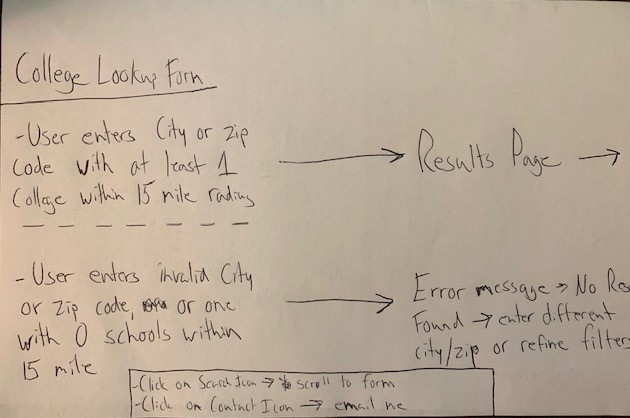 College Lookup Form
-User enters City or Zip
Code with at least 1
College within 15 mile radius
Results Page →
- User enters invalid City
or Zip code, or one
with 0 schools within
15 mile
Error message → No Res
Found → enter different
city/zip or refine filters
-Click on Search Icon → scroll to form
-Click on Contact Icon → email me